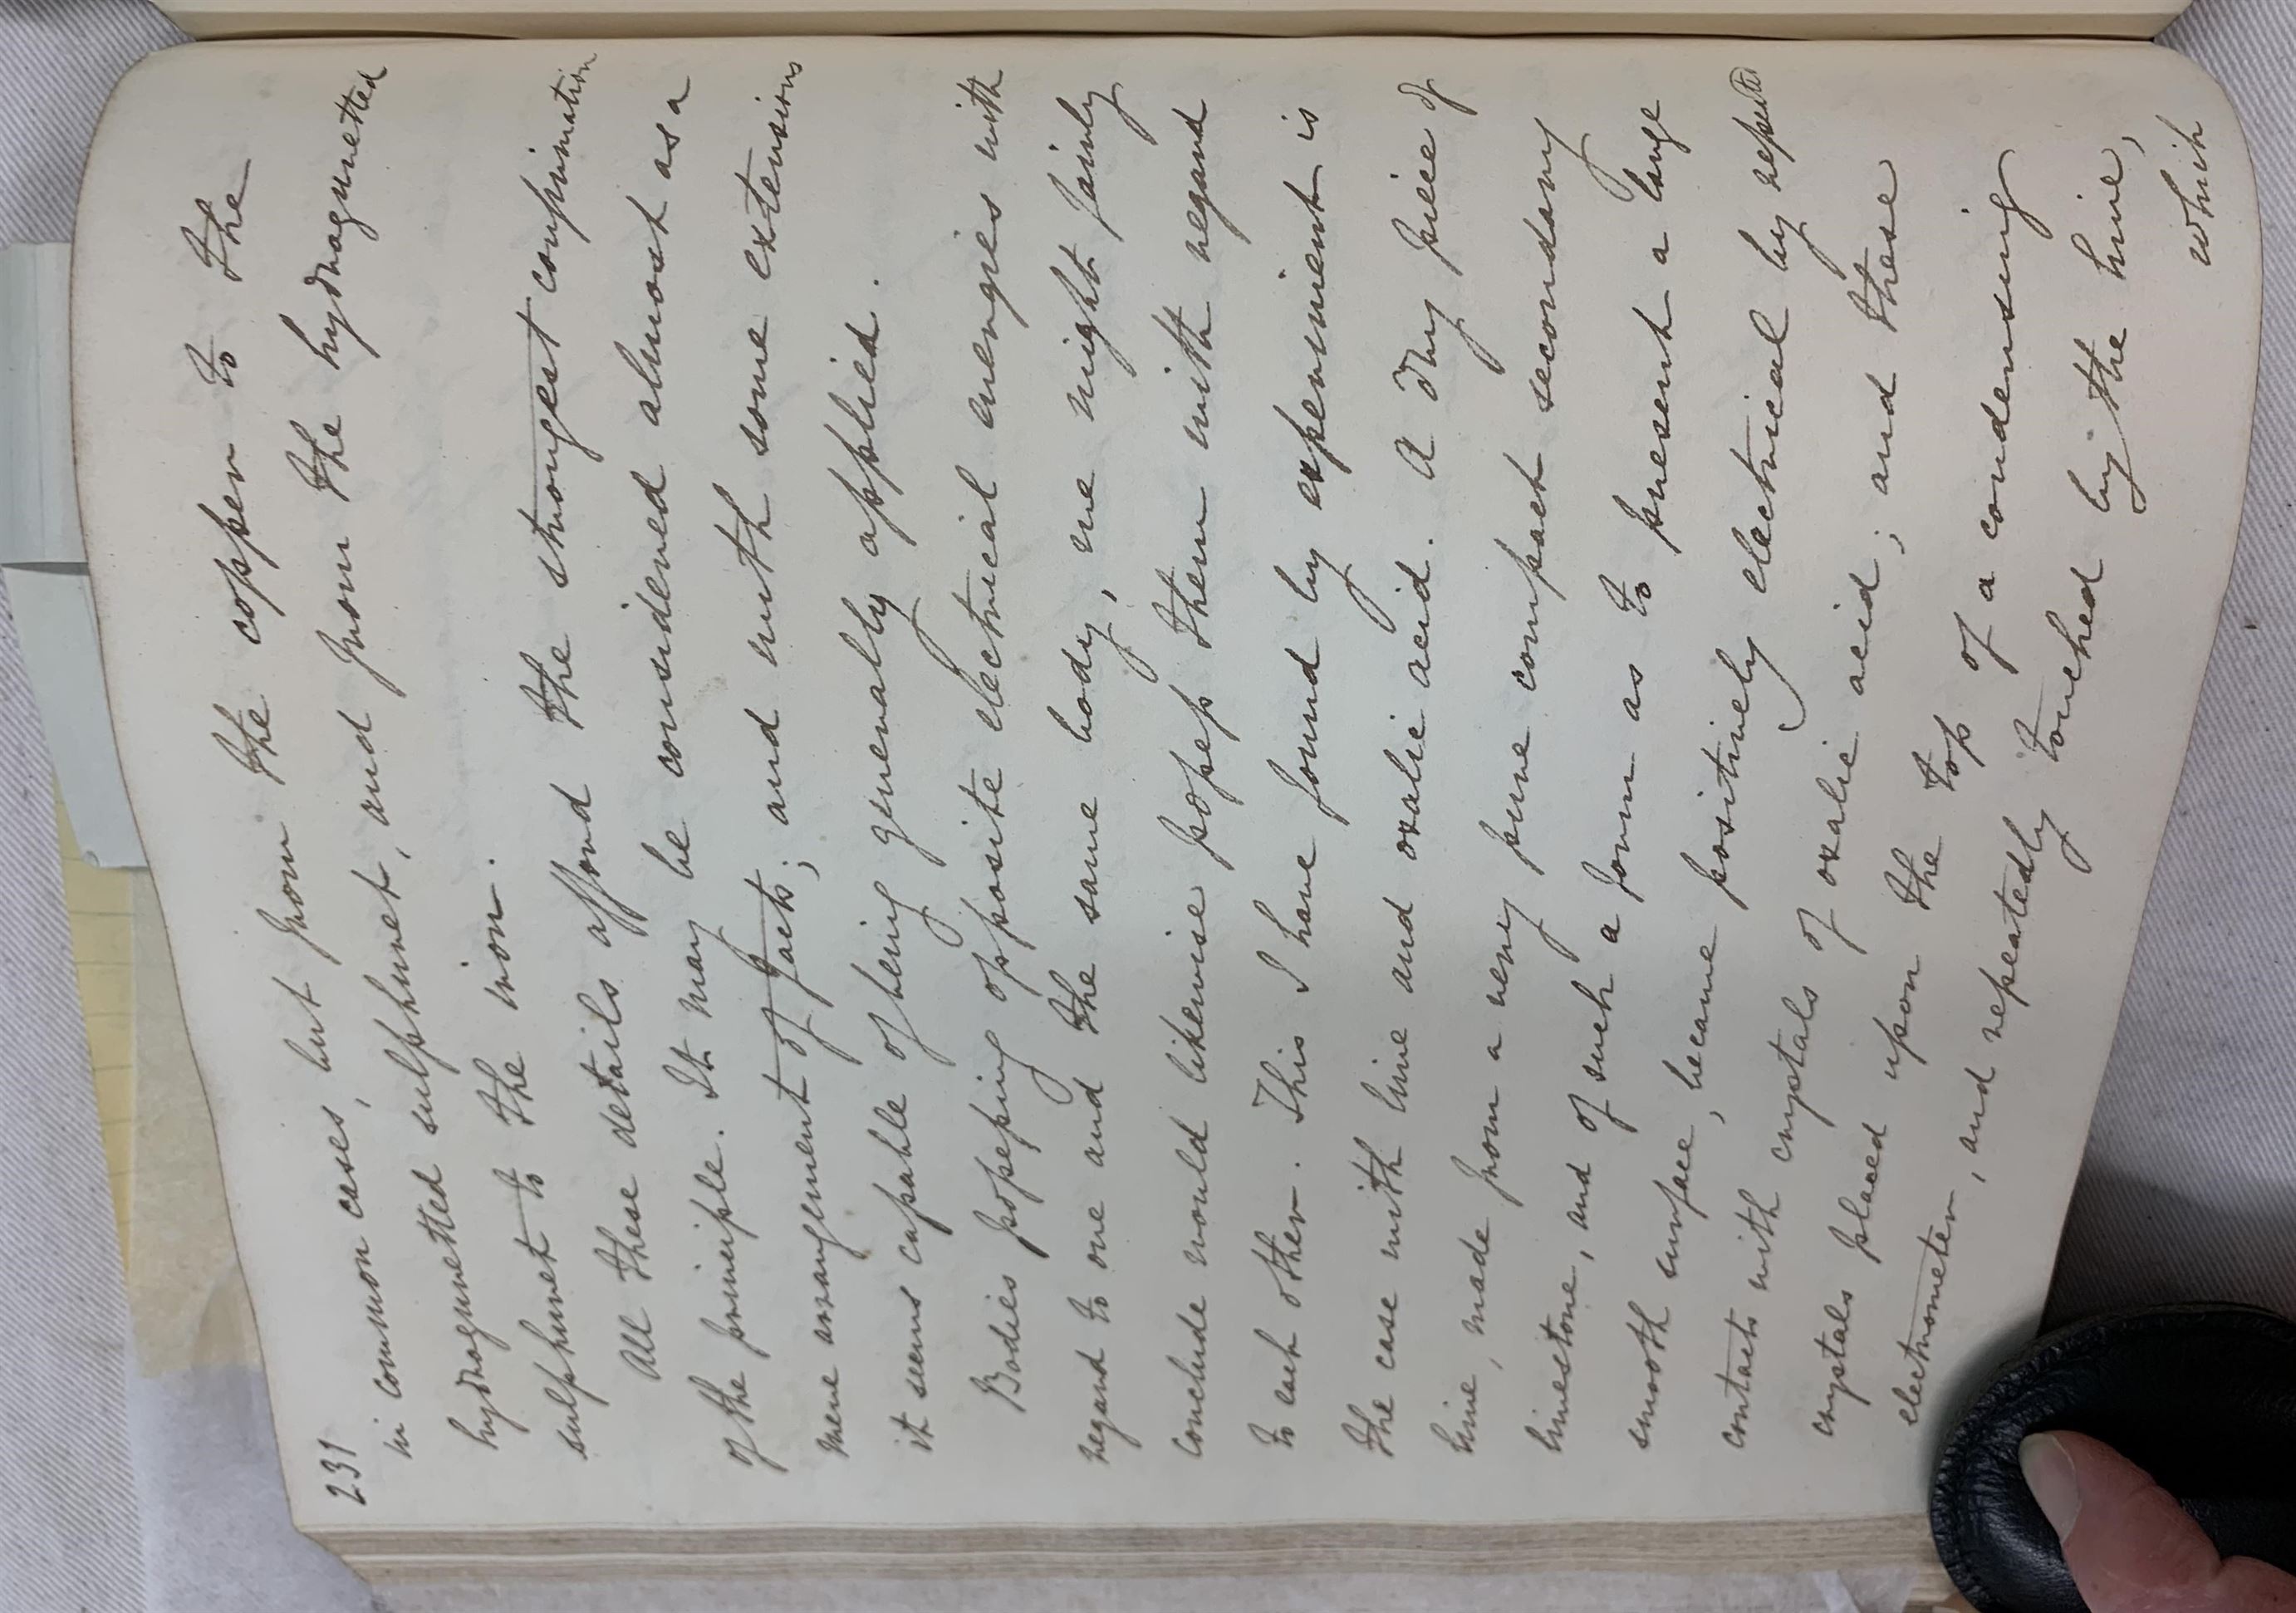 231
in common cases, but from the copper to the
hydroguretted sulphuret, and from the hydroguretted
sulphuret to the iron.
All these details afford the strongest confirmation
of the principle. It may be considered almost as a
mere arrangement of facts; and with some extensions
it seems capable of being generally applied.
Bodies possessing opposite electrical energies with
regard to one and the same body, we might fairly
conclude would likewise possess them with regard
to each other. This I have found by experiment is
the case with lime and oxalic acid. A dry piece of
lime, made from a very pure compact secondary
limestone, and of such a form as to present a large
smooth surface, became positively electrical by repeated
contacts with crystals of oxalic acid; and these
crystals placed upon the top of a condensing
electrometer, and repeatedly touched by the lime,
which